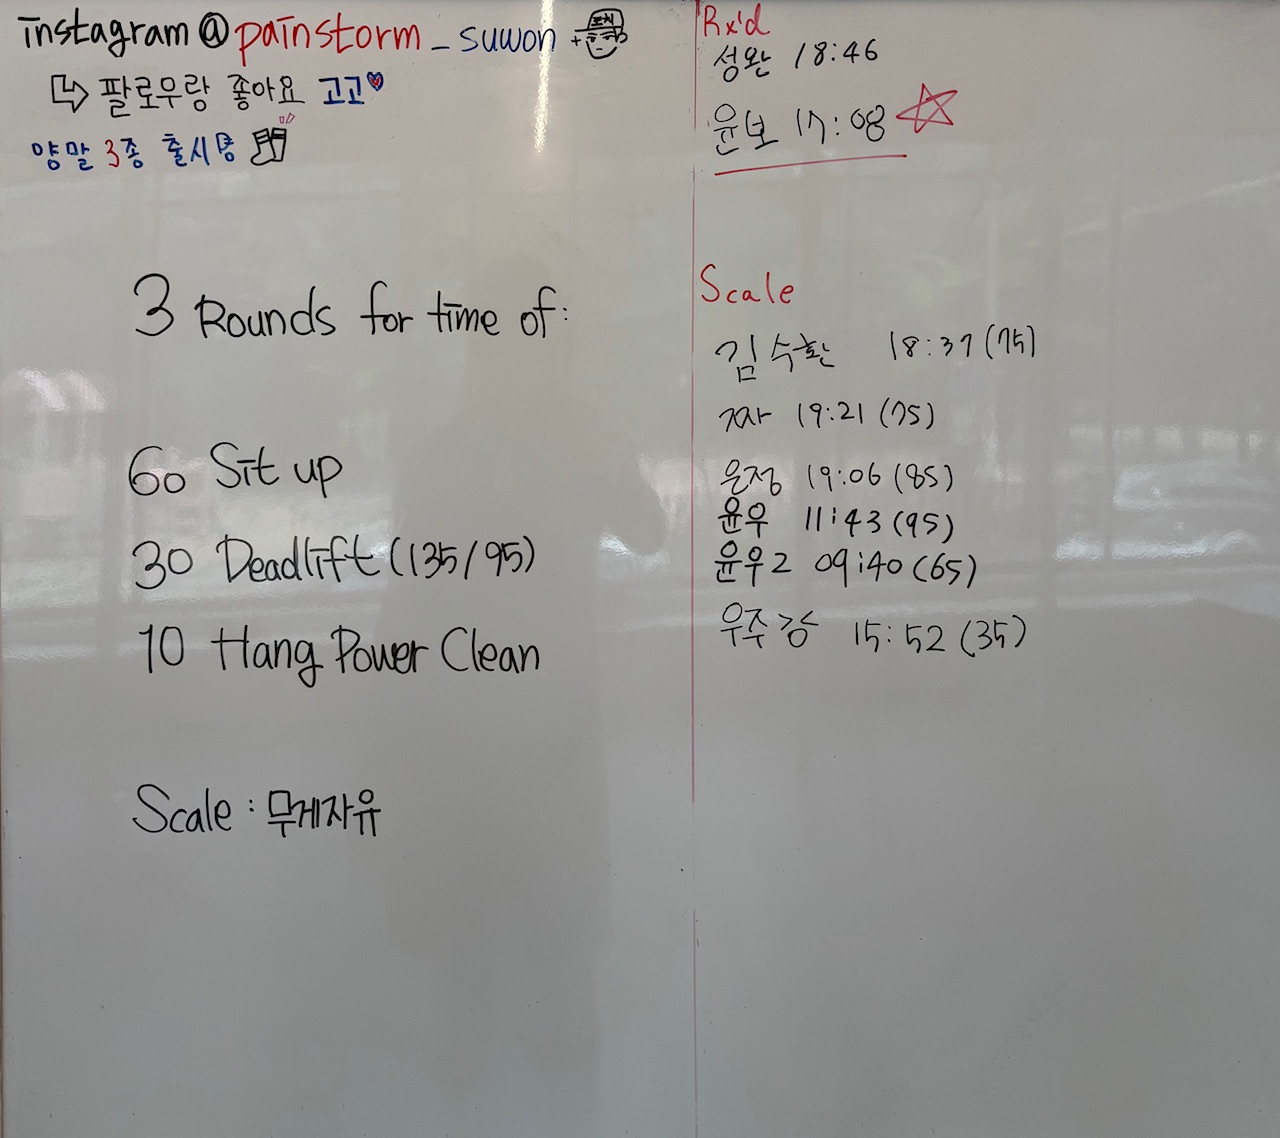 instagram@painstorm_suwon +
코치
팔로우랑 좋아요 고고
양말 3종 출시뿅
3 Rounds for time of:
60 Sit up
30 Deadlift (135/95)
10 Hang Power Clean
Scale : 무게자유
Rx'd
성완 18:46
윤보 17:08
Scale
김수환 18:37 (75)
19:21 (75)
은정 19:06 (85)
윤우 11:43 (95)
윤우2 09:40 (65)
우주강 15:52 (35)